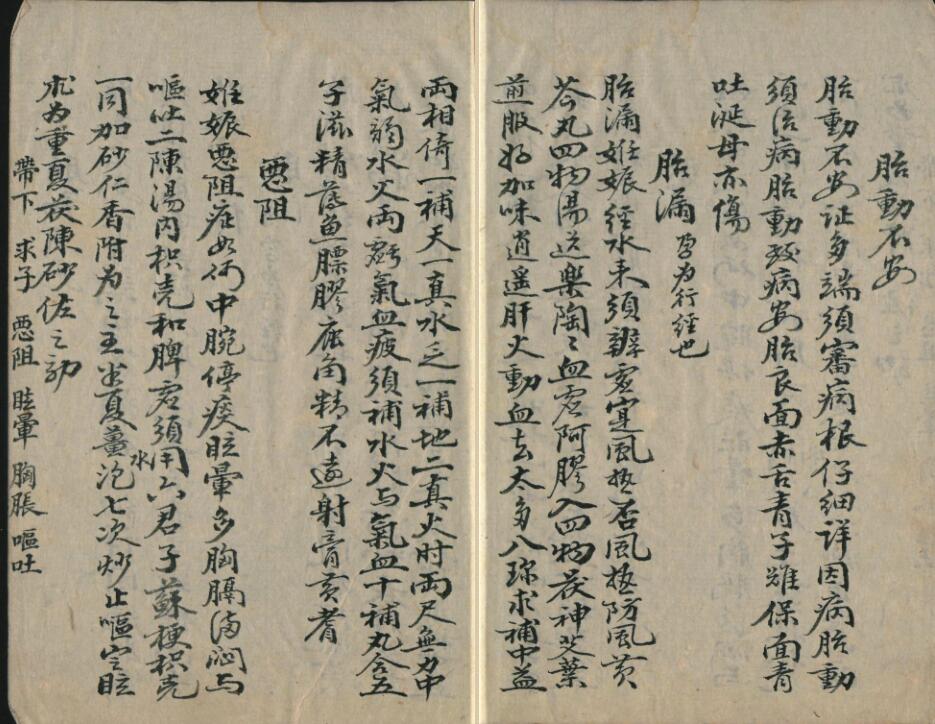 胎動不安
胎動不安证多端須審病根仔细详因病胎動
須治病胎動致病安胎良面赤舌青子难保面青
吐涎母亦傷
胎漏 孕为行經也
胎漏姙娠經水来須辨虚寔風热否風热防風黄
芩丸四物湯送樂陶〻血虚阿膠入四物茯神艾葉
煎服好加味逍遥肝火動血去太多八珍求補中益
両相倚一補天一真水乏一補地二真火时両尺無力中
氣弱水火両虧氣血疲須補水火与氣血十補丸含五
子滋精底魚膘膠鹿角精不遠射膏黄耆
惡阻
姙娠惡阻症如何中腕停痰眩暈多胸膈满闷与
嘔吐二陳湯内枳壳和脾虚須用六君子蘇梗枳壳
一同加砂仁香附为之主半夏薑水泡七次炒止嘔定眩
术为重夏茯陳砂佐之功
帶下 求子 惡阻 眩暈 胸脹 嘔吐